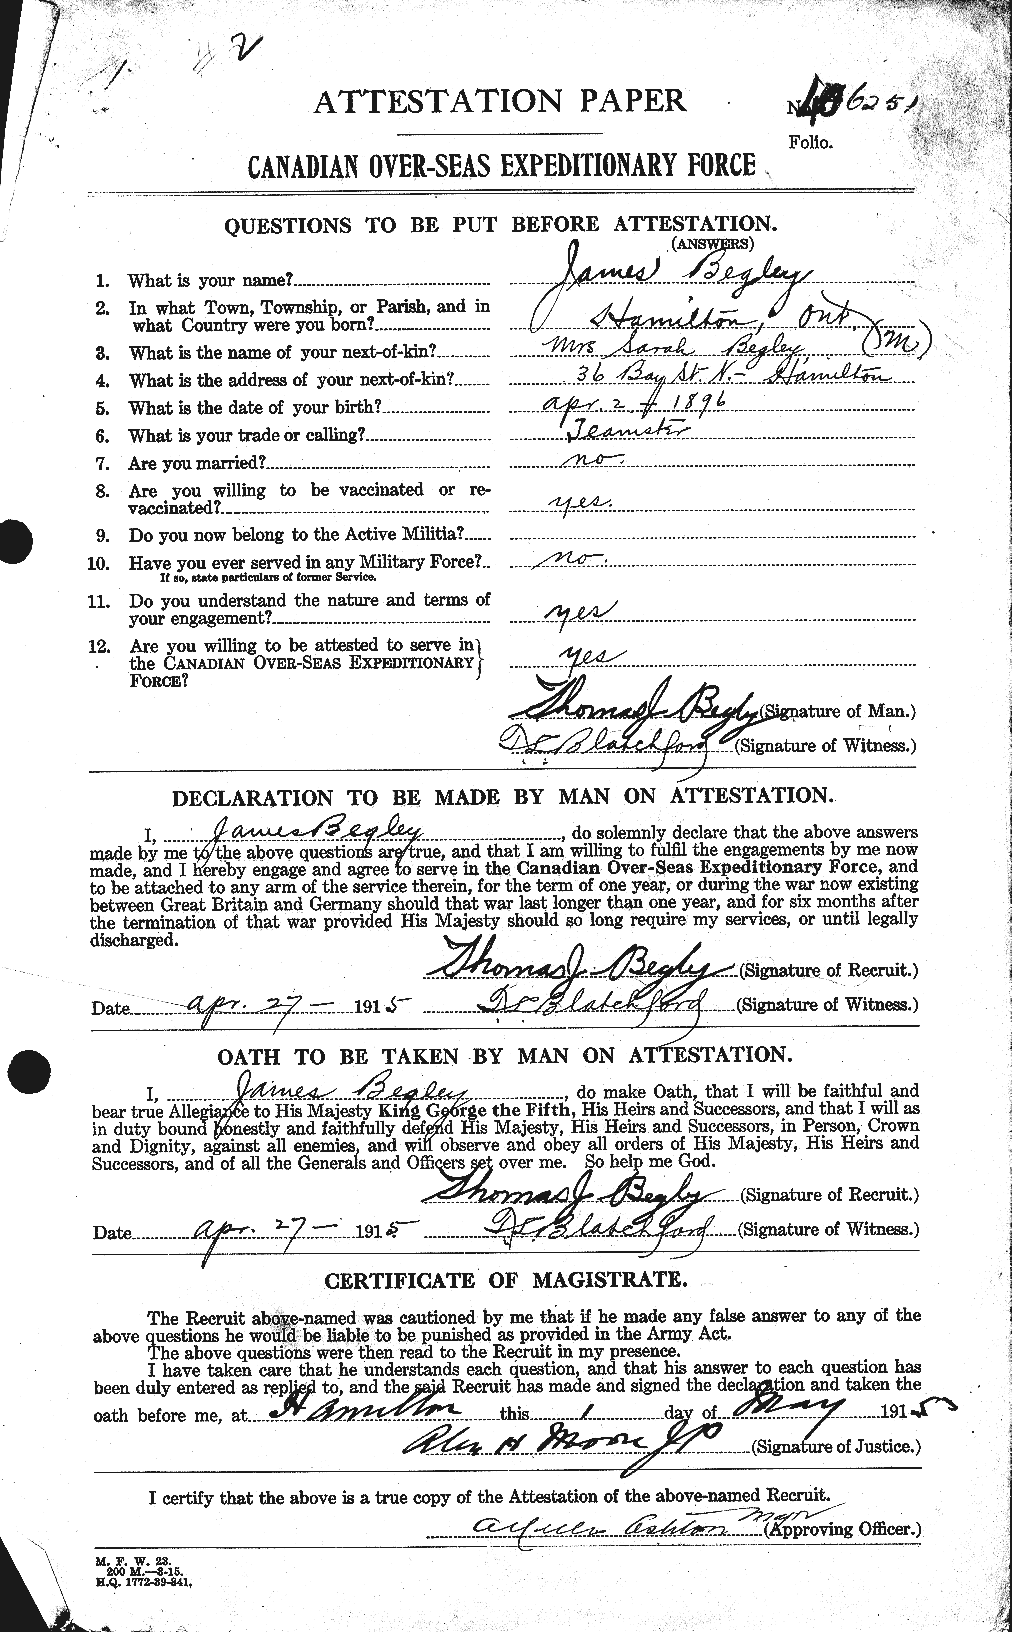 2
ATTESTATION PAPER
No. 406251
Folio.
CANADIAN OVER-SEAS EXPEDITIONARY FORCE
QUESTIONS TO BE PUT BEFORE ATTESTATION.
(ANSWERS)
1. What is your name? James Begley
2. In what Town, Township, or Parish, and in
what Country were you born? Hamilton, Ont.
3. What is the name of your next-of-kin? Mrs Sarah Begley (M)
4. What is the address of your next-of-kin? 36 Bay St. N.- Hamilton
5. What is the date of your birth? Apr. 2 1896
6. What is your trade or calling? Teamster
7. Are you married? no.
8. Are you willing to be vaccinated or re-
vaccinated? yes.
9. Do you now belong to the Active Militia?
10. Have you ever served in any Military Force? no.
If so, state particulars of former Service.
11. Do you understand the nature and terms of
your engagement? yes
12. Are you willing to be attested to serve in
the CANADIAN OVER-SEAS EXPEDITIONARY yes
FORCE?
Thomas J Begly (Signature of Man.)
Blatchford (Signature of Witness.)
DECLARATION TO BE MADE BY MAN ON ATTESTATION.
I, James Begley, do solemnly declare that the above answers
made by me to the above questions are true, and that I am willing to fulfil the engagements by me now
made, and I hereby engage and agree to serve in the Canadian Over-Seas Expeditionary Force, and
to be attached to any arm of the service therein, for the term of one year, or during the war now existing
between Great Britain and Germany should that war last longer than one year, and for six months after
the termination of that war provided His Majesty should so long require my services, or until legally
discharged.
Thomas J Begly (Signature of Recruit.)
Date Apr. 27 - 1915 Blatchford (Signature of Witness.)
OATH TO BE TAKEN BY MAN ON ATTESTATION.
I, James Begley, do make Oath, that I will be faithful and
bear true Allegiance to His Majesty King George the Fifth, His Heirs and Successors, and that I will as
in duty bound honestly and faithfully defend His Majesty, His Heirs and Successors, in Person, Crown
and Dignity, against all enemies, and will observe and obey all orders of His Majesty, His Heirs and
Successors, and of all the Generals and Officers set over me. So help me God.
Thomas J Begly (Signature of Recruit.)
Date Apr. 27 - 1915 Blatchford (Signature of Witness.)
CERTIFICATE OF MAGISTRATE.
The Recruit above-named was cautioned by me that if he made any false answer to any of the
above questions he would be liable to be punished as provided in the Army Act.
The above questions were then read to the Recruit in my presence.
I have taken care that he understands each question, and that his answer to each question has
been duly entered as replied to, and the said Recruit has made and signed the declaration and taken the
oath before me, at Hamilton this 1 day of May 1915
Alex H Moore JP (Signature of Justice.)
I certify that the above is a true copy of the Attestation of the above-named Recruit.
Ashton Major (Approving Officer.)
M. F. W. 23.
200 M.-3-15.
H.Q. 1772-39-841.